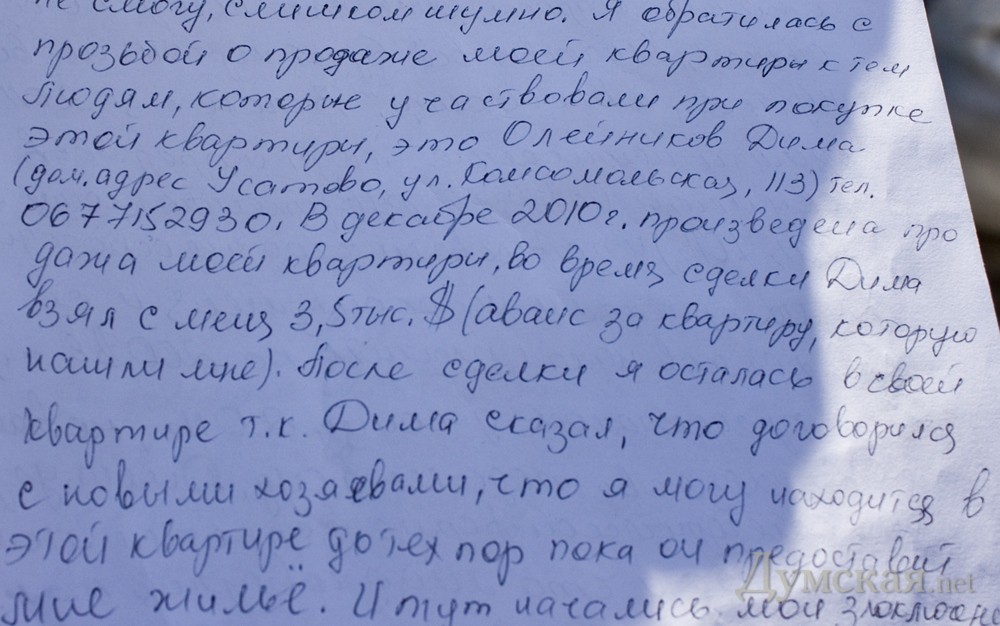 не смогу, слишком шумно. Я обратилась с
прозьбой о продаже моей квартиры к тем
людям, которые участвовали при покупке
этой квартиры, это Олейников Дима
(дом. адрес Усатово, ул. Комсомольская, 113) тел.
0677152930. В декабре 2010г. произведена про
дажа моей квартиры, во время сделки Дима
взял с меня 3,5 тыс. $ (аванс за квартиру, которую
нашли мне). После сделки я осталась в своей
квартире т.к. Дима сказал, что договорился
с новыми хозяевами, что я могу находится в
этой квартире до тех пор пока он предоставит
мне жильё. И тут начались мои злоключени
Думская.net